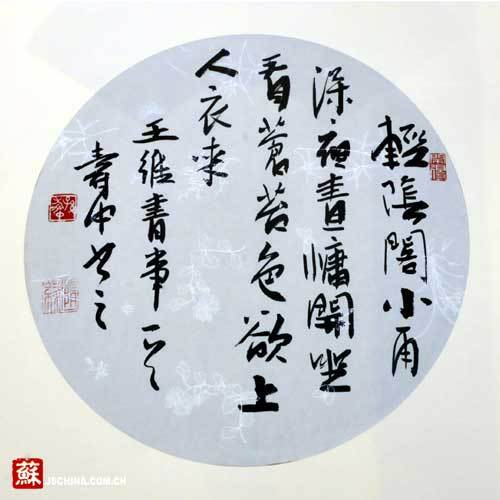 輕陰閣小雨
深院晝慵開坐
看蒼苔色欲上
人衣来
王維書事一首
壽中书之
蘇 JSCHINA.COM.CN